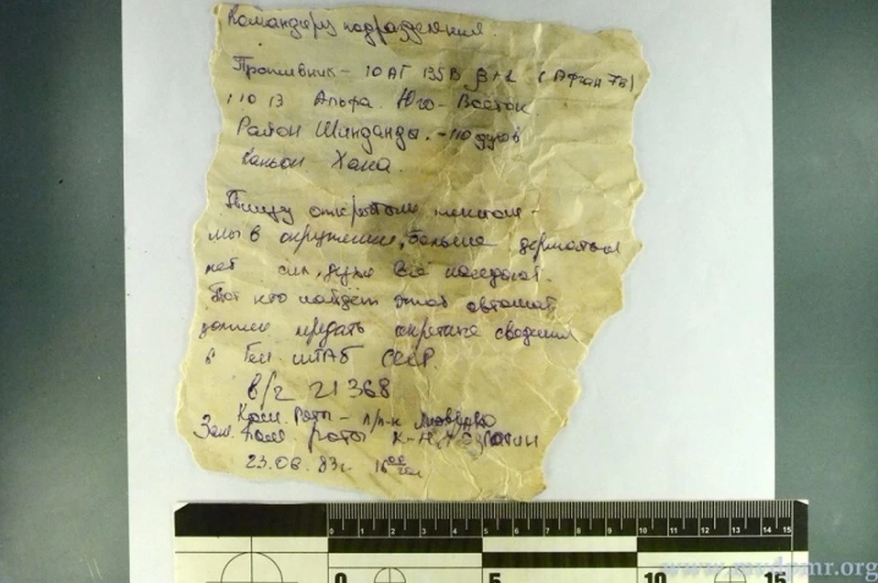 Командиру подразделения.
Противник - 10 АГ 135В (Афган 78)
110 13 Альфа Юго-Восток
Район Шинданды. - 110 духов
Каньон Хана.
Пишу открытым текстом -
мы в окружении, больше держаться
нет сил, духи всё наседают.
Тот кто найдёт этот автомат
должен передать секретные сведения
в Ген. штаб СССР.
в/ч 21368
Ком. Роты - п/п-к
Зам. Ком. роты к-н
23.06.83г. 16 00
0 1 2 3 4 5 6 7 8 9 10 11 12 13 14 15
0 5 10 15
www.mvdpmr.org